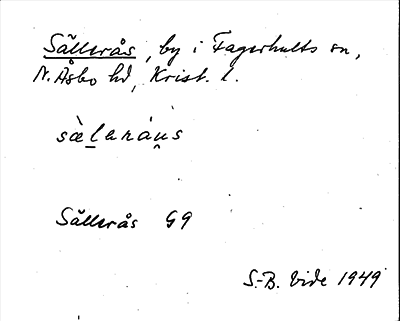 Sällerås, by i Fagerhults sn,
N. Åsbo hd, Krist. l.
sæ̀lạráu̯s
Sällerås G9
S.-B. Vide 1949